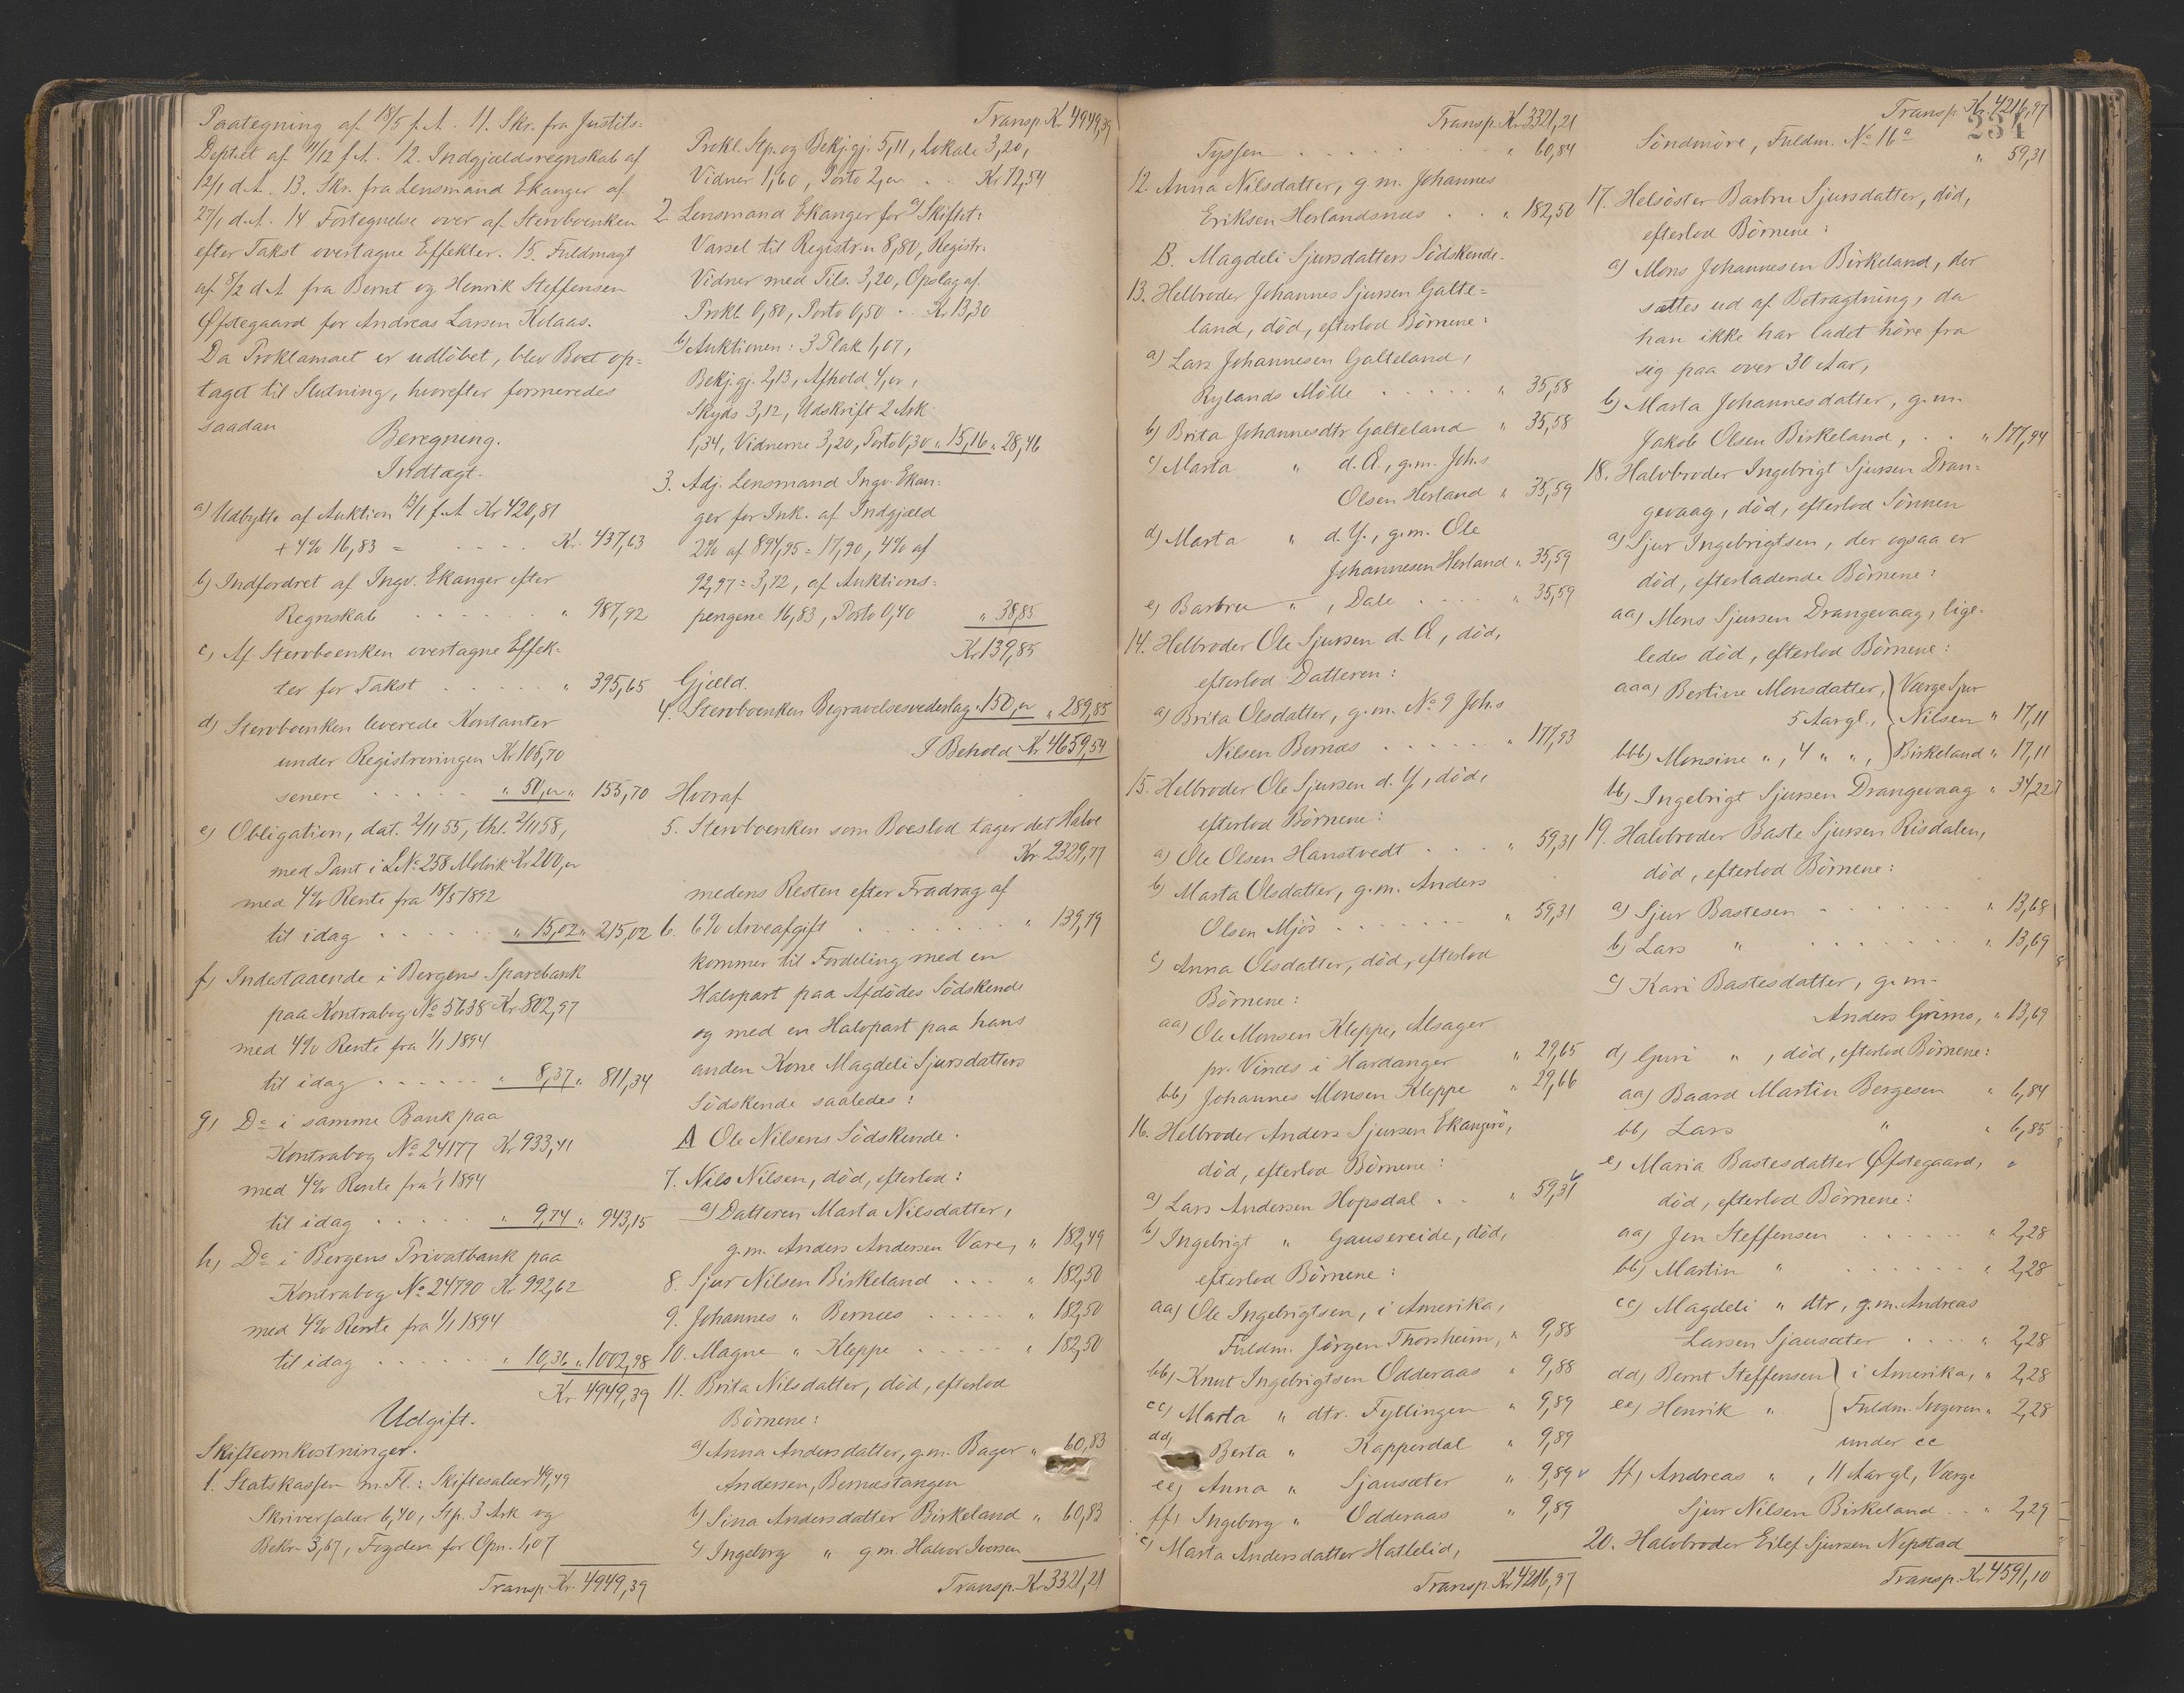 Paategning af 18/5 f.A. 11. Skr. fra Justits-
Deptet af 11/12 f.A. 12. Indgjældsregnskab af
12/1 d.A. 13. Skr. fra Lensmand Ekanger af
27/1 d.A. 14 Fortegnelse over af Stervboenken
efter Takst overtagne Effekter. 15. Fuldmagt
af 8/2 d.A fra Bernt og Henrik Steffensen
Øfstegaard for Andreas Larsen Kolaas.
Da Proklamaet er udløbet, blev Boet op-
taget til Slutning, hvorefter formeredes
saadan
Beregning.
Indtægt.
a) Udbytte af Auktion 13/1 f.A Kr 420,81
+ 4% 16,83 = . . . . Kr. 437,63
b) Indfordret af Ingv. Ekanger efter
Regnskab . . . . . " 987,92
c) Af Stervboenken overtagne Effek-
ter for Takst . . . . . " 395,65
d) Stervboenken leverede Kontanter
under Registreringen Kr 105,70
senere . . . . . " 50,00 " 155,70
e) Obligation, dat. 2/11 55, thl. 2/11 58,
med Pant i LNo 258 Molvik Kr 200,00
med 4% Rente fra 18/5 1892
til idag . . . . . " 15,02 " 215,02
f) Indestaaende i Bergens Sparebank
paa Kontrabog No 5638 Kr 802,97
med 4% Rente fra 1/1 1894
til idag . . . . . " 8,37 " 811,34
g) Do i samme Bank paa
Kontrabog No 24177 Kr 933,41
med 4% Rente fra 1/1 1894
til idag . . . . . " 9,74 " 943,15
h) Do i Bergens Privatbank paa
Kontrabog No 24790 Kr 992,62
med 4% Rente fra 1/1 1894
til idag . . . . . " 10,36 " 1002,98
Kr 4949,39
Udgift.
Skifteomkostninger.
1. Statskassen m. Fl.: Skiftesalær 49,49
Skriversalær 6,40, Stp. 3 Ark og
Bekr. 3,67, Fogden for Opn. 1,07
Transp. Kr. 4949,39
Transp Kr 4949,39
Prokl. Stp. og Bekj.gj. 5,11, Lokale 3,20,
Vidner 1,60, Porto 2,00 . . Kr 72,54
2. Lensmand Ekanger for a) Skiftet:
Varsel til Registr.n 8,80, Registr.
Vidner med Tils. 3,20, Opslag af
Prokl 0,80, Porto 0,50 . . Kr 13,30
b) Auktionen: 3 Plak 1,07,
Bekj.gj. 2,13, Afhold. 4,00,
Skyds 3,12, Udskrift 2 Ark
1,34, Vidnerne 3,20, Porto 0,30 " 15,16 " 28,46
3. Adj. Lensmand Ingv. Ekan-
ger for Ink. af Indgjæld
2% af 894,95 = 17,90, 4% af
92,97 = 3,72, af Auktions-
pengene 16,83, Porto 0,40 " 38,85
Kr 139,85
Gjæld.
4. Stervboenken Begravelsesvederlag " 150,00 " 289,85
I Behold Kr 4659,54
Hvoraf
5. Stervboenken som Boeslod tager det Halve
Kr. 2329,77
medens Resten efter Fradrag af
6. 6% Arveafgift . . . . . " 139,79
kommer til Fordeling med en
Halvpart paa Afdødes Södskende
og med en Halvpart paa hans
anden Kone Magdeli Sjursdatters
Södskende saaledes:
A Ole Nilsens Södskende.
7. Nils Nilsen, död, efterlod:
a) Datteren Marta Nilsdatter,
g.m. Anders Andersen Vare, " 182,49
8. Sjur Nilsen Birkeland . . . " 182,50
9. Johannes " Bernæs . . . . . " 182,50
10. Magne " Kleppe . . . . . " 182,50
11. Brita Nilsdatter, död, efterlod
Börnene:
a) Anna Andersdatter, g.m. Bager " 60,83
Andersen, Bernæstangen
b) Sina Andersdatter Birkeland " 60,83
c) Ingeborg " g.m. Halvor Iversen
Transp. Kr 3321,21
Transp. Kr 3321,21
Tyssen . . . . . . . " 60,84
12. Anna Nilsdatter, g.m. Johannes
Eriksen Herlandsnæs . . " 182,50
B. Magdeli Sjursdatters Södskende.
13. Helbroder Johannes Sjursen Galte-
land, död, efterlod Börnene:
a) Lars Johannesen Galteland,
Rylands Mölle . . . . . " 35,58
b) Brita Johannesdtr Galteland " 35,58
c) Marta " d.Æ., g.m. Joh.s
Olsen Herland " 35,59
d) Marta " d.Y., g.m. Ole
Johannesen Herland " 35,59
e) Barbru " , Dale . . . . " 35,59
14. Helbroder Ole Sjursen d.Æ, död,
efterlod Datteren:
a) Brita Olsdatter, g.m. No 9 Joh.s
Nilsen Bernæs . . . . . . " 177,93
15. Helbroder Ole Sjursen d.Y., död,
efterlod Börnene:
a) Ole Olsen Hanstvedt . . . . " 59,31
b) Marta Olsdatter, g.m. Anders
Olsen Mjös . . . . . . " 59,31
c) Anna Olsdatter, död, efterlod
Börnene:
aa) Ole Monsen Kleppe, Alsager
pr. Vinæs i Hardanger " 29,65
bb) Johannes Monsen Kleppe " 29,66
16. Helbroder Anders Sjursen Ekangerö,
död, efterlod Börnene:
a) Lars Andersen Hopsdal . . " 59,31
b) Ingebrigt " Gausereide, död,
efterlod Börnene:
aa) Ole Ingebrigtsen, i Amerika,
Fuldm. Jörgen Thorsheim, " 9,88
bb) Knut Ingebrigtsen Odderaas " 9,88
cc) Marta " dtr. Fyllingen " 9,89
dd) Berta " Kapperdal " 9,89
ee) Anna " Sjausæter " 9,89
ff) Ingeborg " Odderaas " 9,89
c) Marta Andersdatter Hatlelid,
Transp. Kr 4216,97
Transp Kr. 4216,97
234
Söndmöre, Fuldm. No 16 a
" 59,31
17. Helsöster Barbru Sjursdatter, död,
efterlod Börnene:
a) Mons Johannesen Birkeland, der
sættes ud af Betragtning, da
han ikke har ladet höre fra
sig paa over 30 Aar,
b) Marta Johannesdatter, g.m.
Jakob Olsen Birkeland, . . " 177,94
18. Halvbroder Ingebrigt Sjursen Dran-
gevaag, död, efterlod Sönnen
a) Sjur Ingebrigtsen, der ogsaa er
död, efterladende Börnene:
aa) Mons Sjursen Drangevaag, lige-
ledes död, efterlod Börnene:
aaa) Bertine Monsdatter, Værge Sjur
5 Aargl., Nilsen " 17,11
bbb) Monsine " , 4 " " , Birkeland " 17,11
bb) Ingebrigt Sjursen Drangevaag " 34,22
19. Halvbroder Baste Sjursen Risdalen,
död, efterlod Börnene:
a) Sjur Bastesen . . . . . . " 13,68
b) Lars " . . . . . . . " 13,69
c) Kari Bastesdatter, g.m.
Anders Grimo, " 13,69
d) Guri " , död, efterlod Börnene:
aa) Baard Martin Bergesen " 6,84
bb) Lars " " 6,85
e) Maria Bastesdatter Øfstegaard,
död, efterlod Börnene:
aa) Jon Steffensen . . . . . " 2,28
bb) Martin " . . . . . . " 2,28
cc) Magdeli " dtr, g.m. Andreas
Larsen Sjausæter . . . . " 2,28
dd) Bernt Steffensen i Amerika, " 2,28
ee) Henrik " Fuldm. Svogeren " 2,28
under cc
ff) Andreas " , 11 Aargl, Værge
Sjur Nilsen Birkeland . . " 2,29
20. Halvbroder Eilef Sjursen Nepstad
Transp. Kr 4591,10